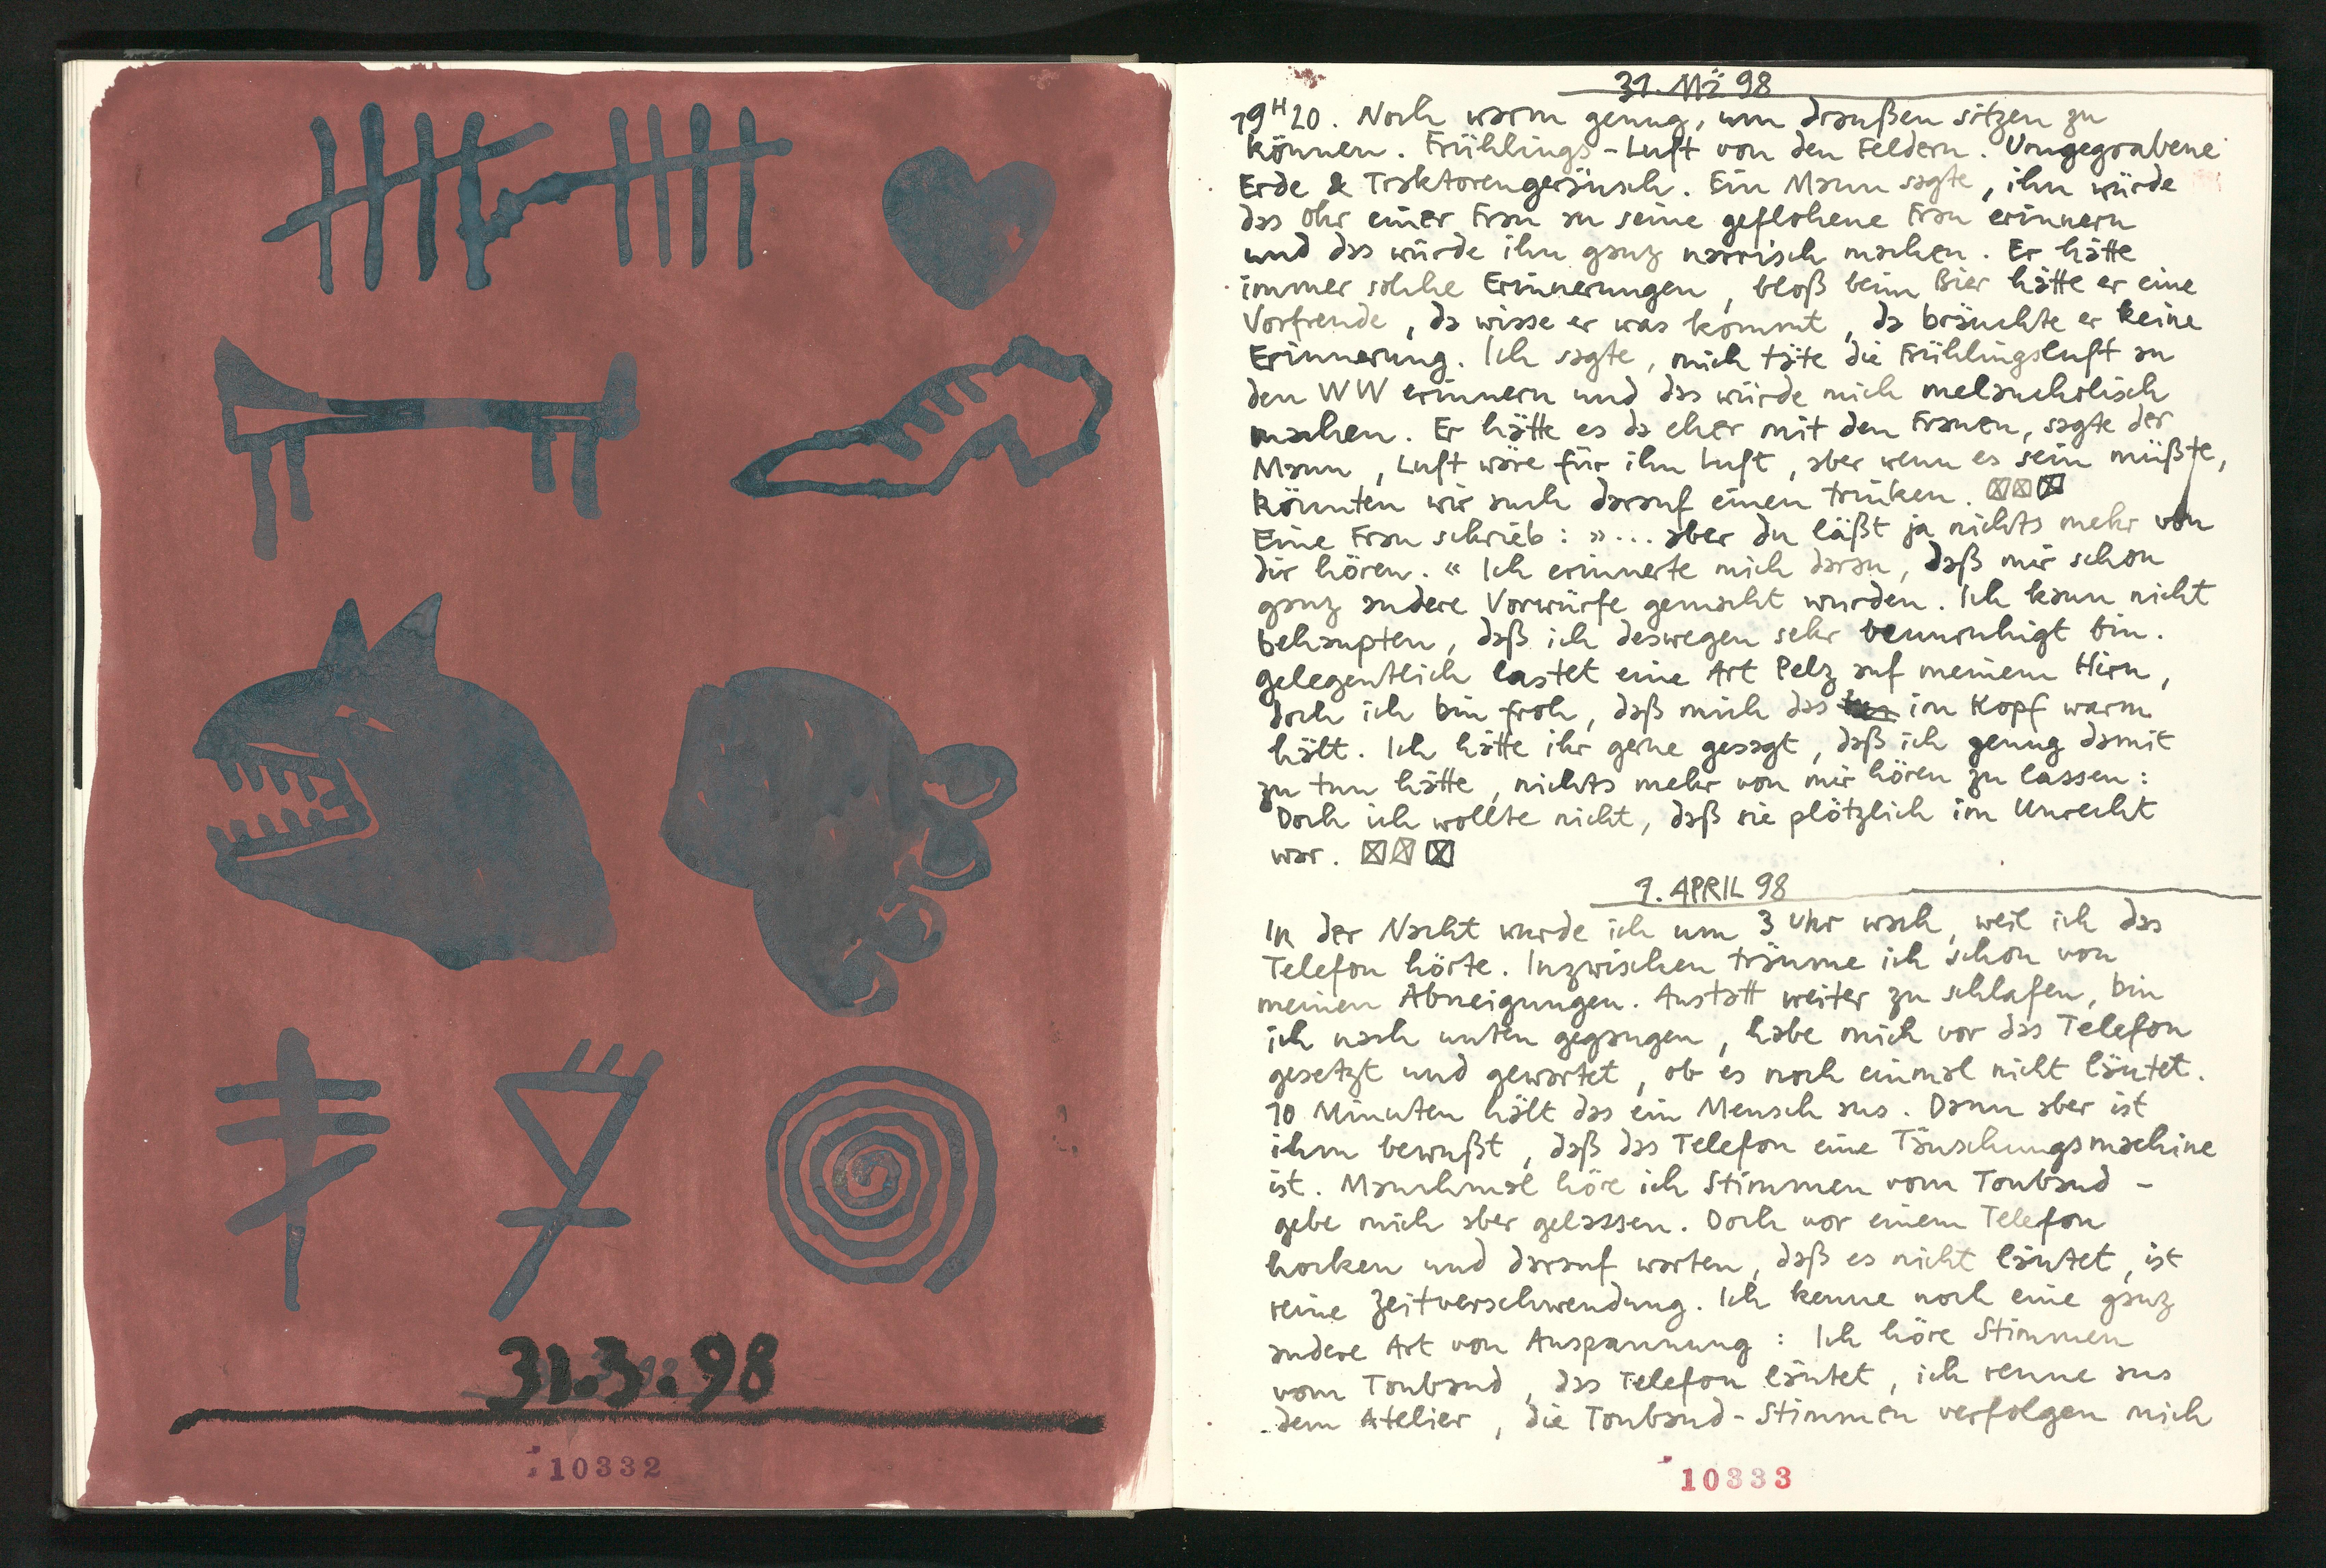 31.3.98
10332
31. MÄ 98
19H20. Noch warm genug, um draußen sitzen zu
können. Frühlings-Luft von den Feldern. Umgegrabene
Erde & Traktorengeräusch. Ein Mann sagte, ihn würde
das Ohr einer Frau an seine geflohene Frau erinnern
und das würde ihn ganz narrisch machen. Er hätte
immer solche Erinnerungen, bloß beim Bier hätte er eine
Vorfreude, da wisse er was kommt, da bräuchte er keine
Erinnerung. Ich sagte, mich täte die Frühlingsluft an
den WW erinnern und das würde mich melancholisch
machen. Er hätte es da eher mit den Frauen, sagte der
Mann, Luft wäre für ihn Luft, aber wenn es sein müßte,
könnten wir auch darauf einen trinken.
Eine Frau schrieb: »... aber du läßt ja nichts mehr von
dir hören.« Ich erinnerte mich daran, daß mir schon
ganz andere Vorwürfe gemacht wurden. Ich kann nicht
behaupten, daß ich deswegen sehr beunruhigt bin.
gelegentlich lastet eine Art Pelz auf meinem Hirn,
doch ich bin froh, daß mich das im Kopf warm
hält. Ich hätte ihr gerne gesagt, daß ich genug damit
zu tun hätte, nichts mehr von mir hören zu lassen:
Doch ich wollte nicht, daß sie plötzlich im Unrecht
war.
1. APRIL 98
In der Nacht wurde ich um 3 Uhr wach, weil ich das
Telefon hörte. Inzwischen träume ich schon von
meinen Abneigungen. Anstatt weiter zu schlafen, bin
ich nach unten gegangen, habe mich vor das Telefon
gesetzt und gewartet, ob es noch einmal nicht läutet.
10 Minuten hält das ein Mensch aus. Dann aber ist
ihm bewußt, daß das Telefon eine Täuschungsmaschine
ist. Manchmal höre ich Stimmen vom Tonband –
gebe mich aber gelassen. Doch vor einem Telefon
hocken und darauf warten, daß es nicht läutet, ist
reine Zeitverschwendung. Ich kenne noch eine ganz
andere Art von Anspannung: Ich höre Stimmen
vom Tonband, das Telefon läutet, ich renne aus
dem Atelier, die Tonband-Stimmen verfolgen mich
10333